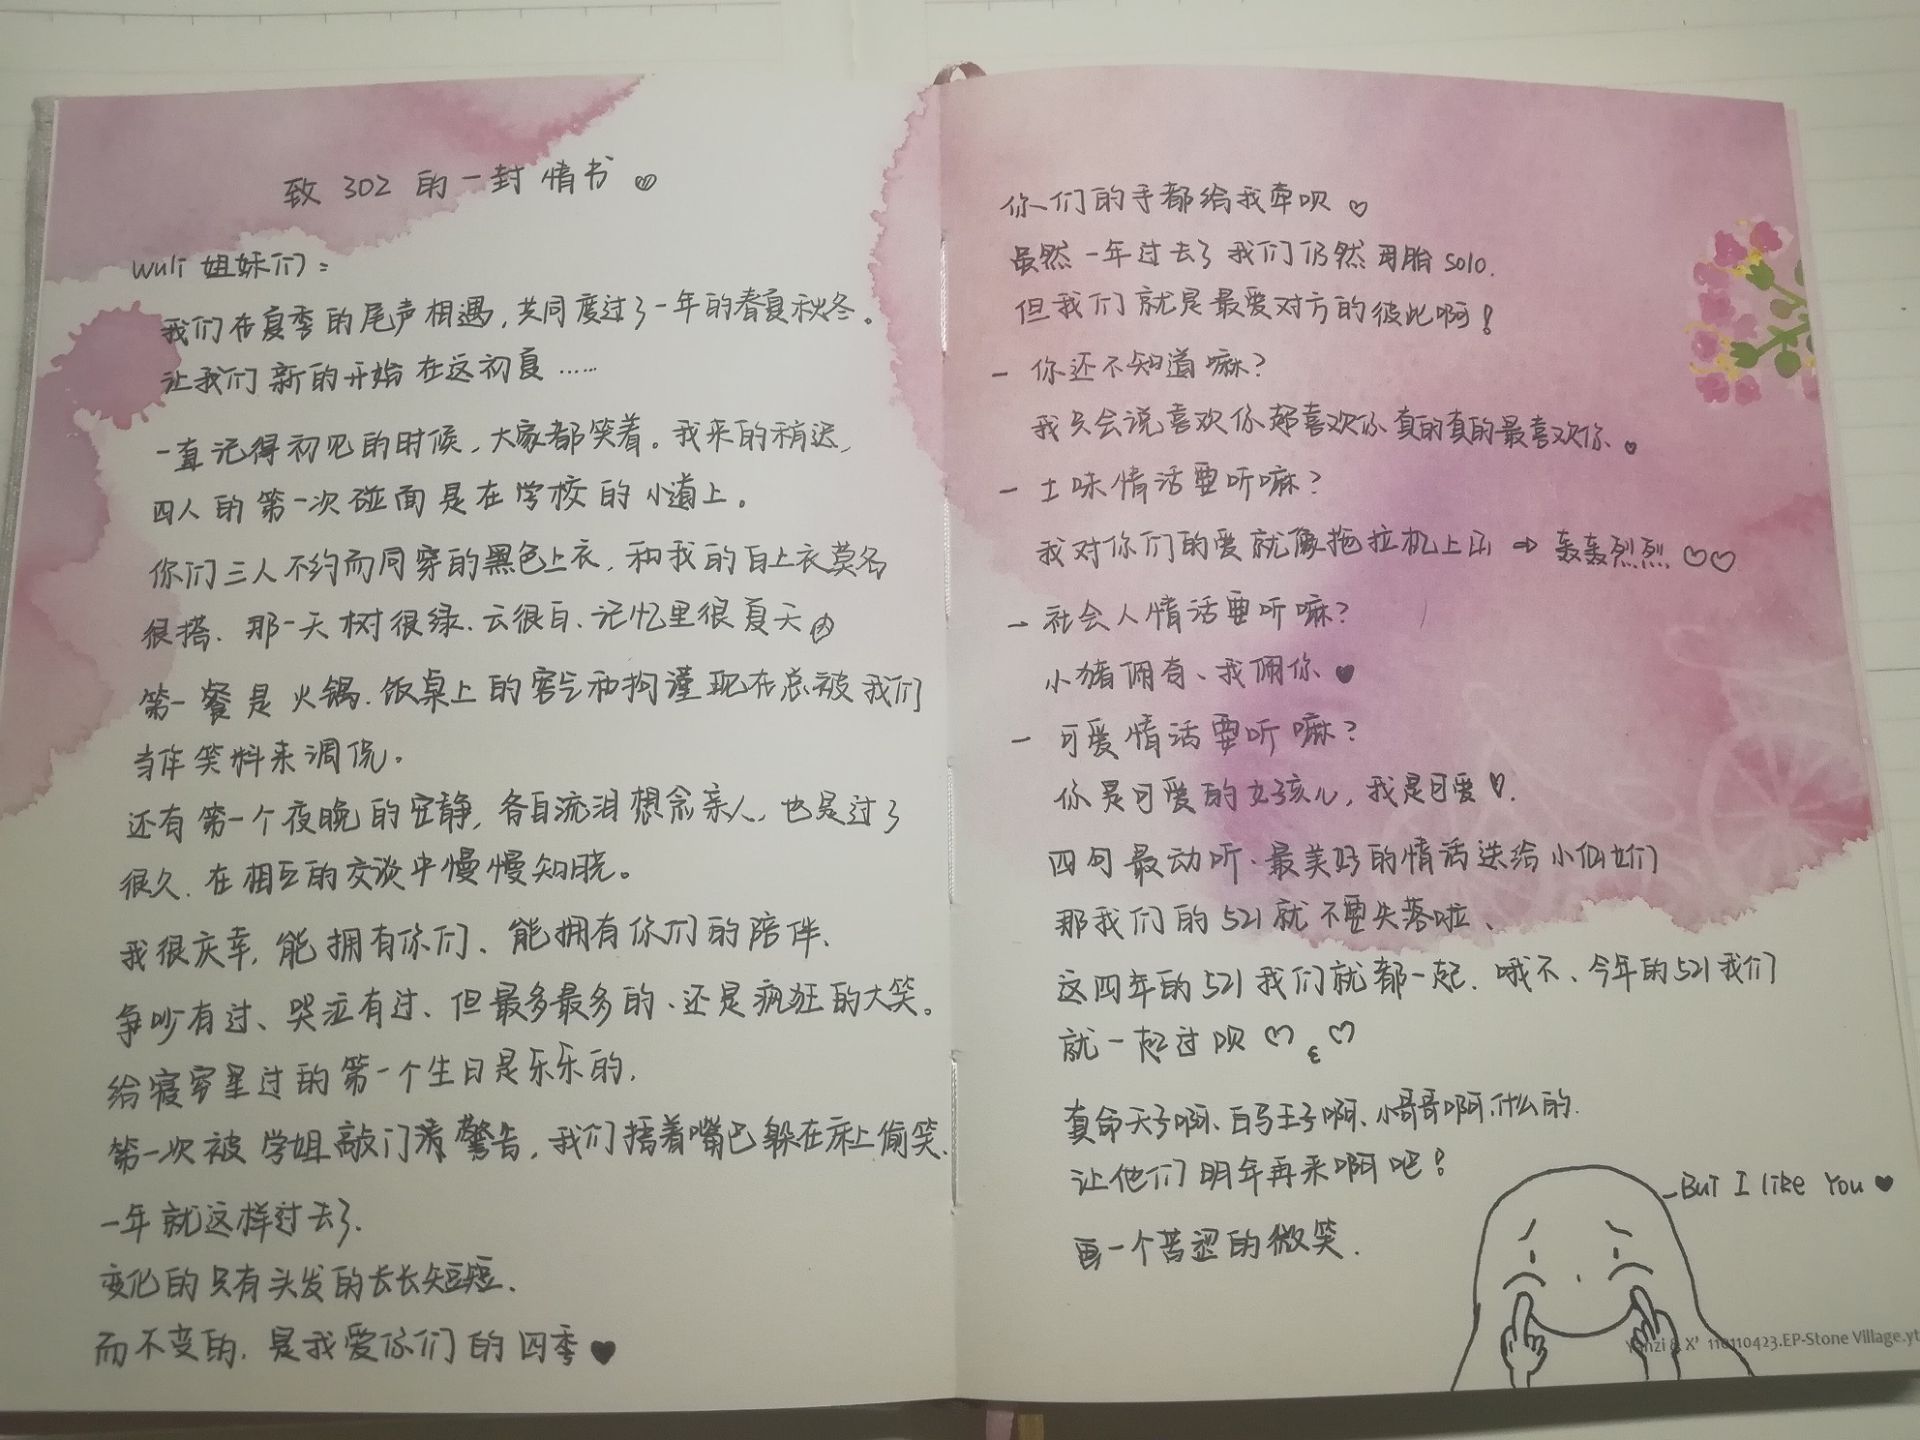 致 302 的一封情书 ♡
wuli 姐妹们：
我们在夏季的尾声相遇，共同度过了一年的春夏秋冬。
让我们新的开始在这初夏……
一直记得初见的时候，大家都笑着。我来的稍迟，
四人的第一次碰面是在学校的小道上。
你们三人不约而同穿的黑色上衣，和我的白上衣莫名
很搭、那一天树很绿、云很白、记忆里很夏天
第一餐是火锅、饭桌上的客气和拘谨现在总被我们
当作笑料来调侃。
还有第一个夜晚的安静，各自流泪想念亲人，也是过了
很久、在相互的交谈中慢慢知晓。
我很庆幸，能拥有你们、能拥有你们的陪伴、
争吵有过、哭泣有过、但最多最多的、还是疯狂的大笑。
给寝室里过的第一个生日是乐乐的，
第一次被学姐敲门清警告，我们捂着嘴巴躲在床上偷笑、
一年就这样过去了、
变化的只有头发的长长短短、
而不变的、是我爱你们的四季♥
你们的手都给我牵呗 ♡
虽然一年过去了我们仍然母胎solo.
但我们就是最爱对方的彼此啊！
- 你还不知道嘛？
我只会说喜欢你超喜欢你真的真的最喜欢你 ♥
- 土味情话要听嘛？
我对你们的爱就像拖拉机上山 ⇒ 轰轰烈烈 ♡♡
- 社会人情话要听嘛？
小猪佩奇、我佩你 ♥
- 可爱情话要听嘛？
你是可爱的女孩儿，我是可爱♡.
四句最动听、最美好的情话送给小仙女们
那我们的521就不要失落啦、
这四年的521我们就都一起、哦不、今年的521我们
就一起过呗 ♡ ε ♡
真命天子啊、白马王子啊、小哥哥啊、什么的、
让他们明年再来啊吧！
画一个苦涩的微笑、
-But I like You ♥
Yanzi & X' 110110423.EP-Stone Village.yt